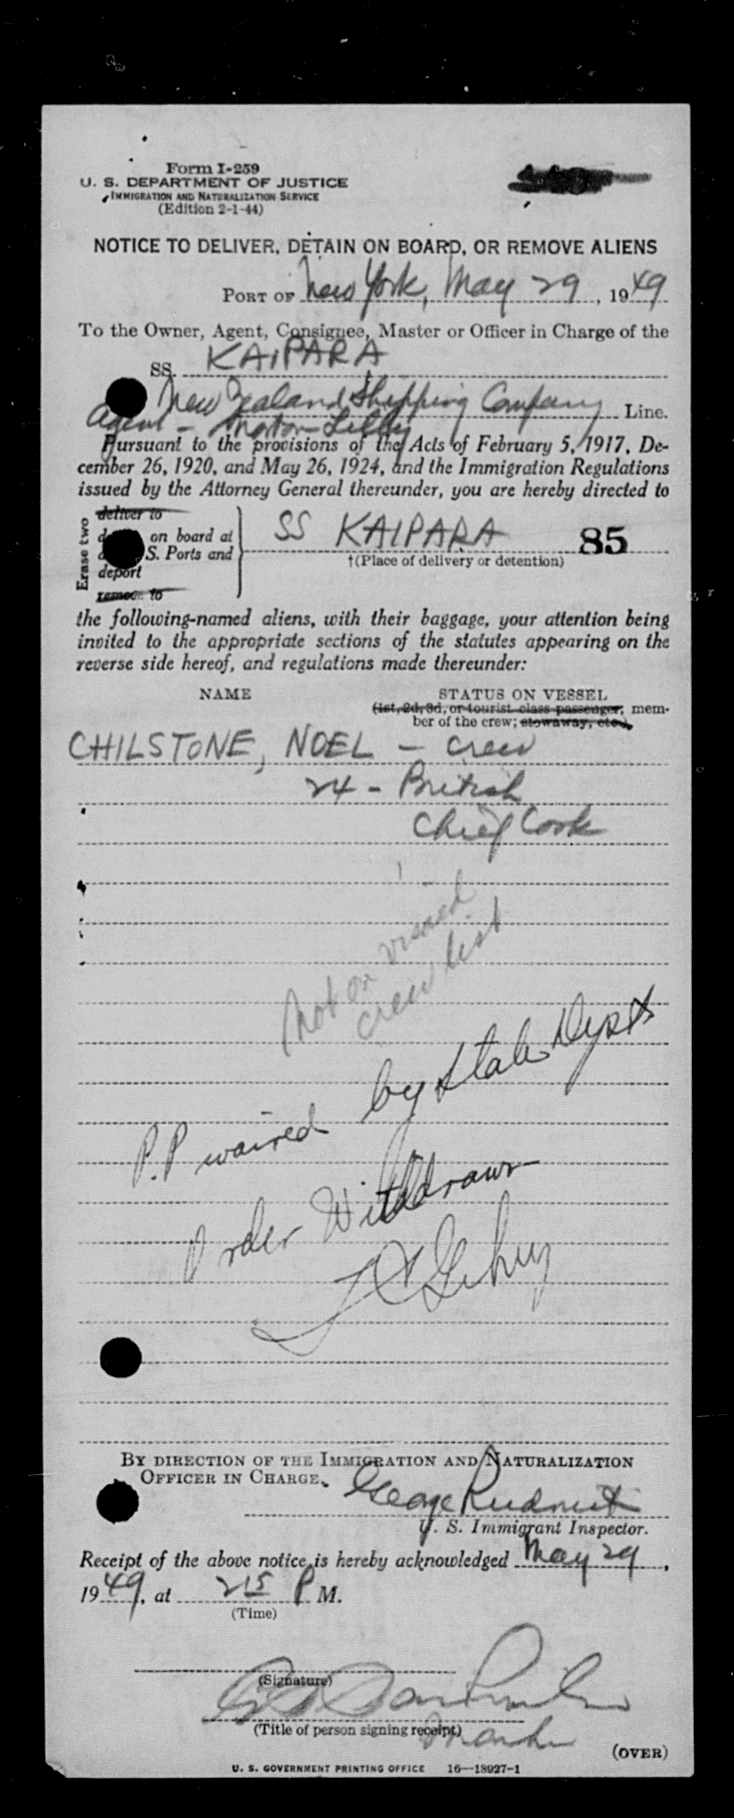 Form I-259
U. S. DEPARTMENT OF JUSTICE
IMMIGRATION AND NATURALIZATION SERVICE
(Edition 2-1-44)
NOTICE TO DELIVER, DETAIN ON BOARD, OR REMOVE ALIENS
PORT OF New York, May 29, 1949
To the Owner, Agent, Consignee, Master or Officer in Charge of the
SS. KAIPARA
New Zealand Shipping Company Line.
Agent - Norton Lilly
Pursuant to the provisions of the Acts of February 5, 1917, De-
cember 26, 1920, and May 26, 1924, and the Immigration Regulations
issued by the Attorney General thereunder, you are hereby directed to
Erase two
deliver to
on board at
S. Ports and
deport
remove to
SS KAIPARA 85
†(Place of delivery or detention)
the following-named aliens, with their baggage, your attention being
invited to the appropriate sections of the statutes appearing on the
reverse side hereof, and regulations made thereunder:
NAME STATUS ON VESSEL
(1st, 2d, 3d, or tourist class passenger, mem-
ber of the crew; stowaway, etc.)
CHILSTONE, NOEL - Crew
24 - British
Chief Cook
Not on visaed
crew list
P.P waived by State Dept
Order Withdrawn
BY DIRECTION OF THE IMMIGRATION AND NATURALIZATION
OFFICER IN CHARGE.
George
U. S. Immigrant Inspector.
Receipt of the above notice is hereby acknowledged May 29,
1949, at 215 P M.
(Time)
(Signature)
(Title of person signing receipt)
(OVER)
U. S. GOVERNMENT PRINTING OFFICE 16—18927-1